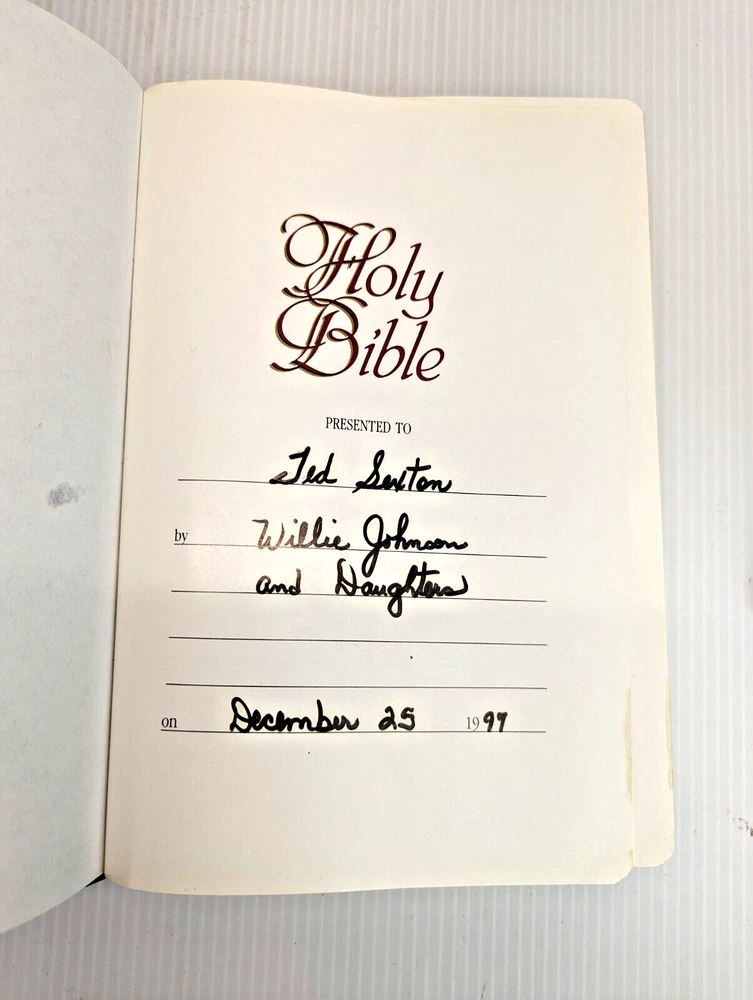 Holy
Bible
PRESENTED TO
Ted Sexton
by Willie Johnson
and Daughters
on December 25 1997